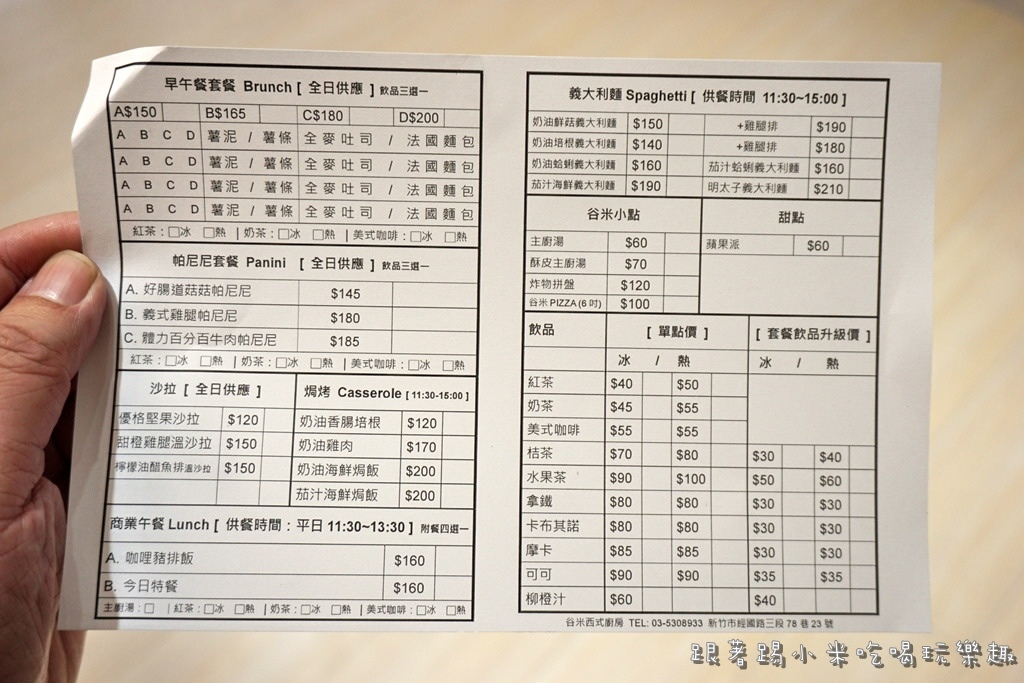 早午餐套餐 Brunch [ 全日供應 ] 飲品三選一
A$150 B$165 C$180 D$200
A B C D 薯泥 / 薯條 全麥吐司 / 法國麵包
A B C D 薯泥 / 薯條 全麥吐司 / 法國麵包
A B C D 薯泥 / 薯條 全麥吐司 / 法國麵包
A B C D 薯泥 / 薯條 全麥吐司 / 法國麵包
紅茶：□冰 □熱 | 奶茶：□冰 □熱 | 美式咖啡：□冰 □熱
帕尼尼套餐 Panini [ 全日供應 ] 飲品三選一
A. 好腸道菇菇帕尼尼 $145
B. 義式雞腿帕尼尼 $180
C. 體力百分百牛肉帕尼尼 $185
紅茶：□冰 □熱 | 奶茶：□冰 □熱 | 美式咖啡：□冰 □熱
沙拉 [ 全日供應 ]
優格堅果沙拉 $120
甜橙雞腿溫沙拉 $150
檸檬油醋魚排溫沙拉 $150
焗烤 Casserole [ 11:30-15:00 ]
奶油香腸培根 $120
奶油雞肉 $170
奶油海鮮焗飯 $200
茄汁海鮮焗飯 $200
商業午餐 Lunch [ 供餐時間：平日 11:30~13:30 ] 附餐四選一
A. 咖哩豬排飯 $160
B. 今日特餐 $160
主廚湯：□ | 紅茶：□冰 □熱 | 奶茶：□冰 □熱 | 美式咖啡：□冰 □熱
義大利麵 Spaghetti [ 供餐時間 11:30~15:00 ]
奶油鮮菇義大利麵 $150 +雞腿排 $190
奶油培根義大利麵 $140 +雞腿排 $180
奶油蛤蜊義大利麵 $160 茄汁蛤蜊義大利麵 $160
茄汁海鮮義大利麵 $190 明太子義大利麵 $210
谷米小點
主廚湯 $60
酥皮主廚湯 $70
炸物拼盤 $120
谷米 PIZZA (6 吋) $100
甜點
蘋果派 $60
飲品 [ 單點價 ] [ 套餐飲品升級價 ]
冰 / 熱 冰 / 熱
紅茶 $40 $50
奶茶 $45 $55
美式咖啡 $55 $55
桔茶 $70 $80 $30 $40
水果茶 $90 $100 $50 $60
拿鐵 $80 $80 $30 $30
卡布其諾 $80 $80 $30 $30
摩卡 $85 $85 $30 $30
可可 $90 $90 $35 $35
柳橙汁 $60 $40
谷米西式廚房 TEL: 03-5308933 新竹市經國路三段 78 巷 23 號
跟著踢小米吃喝玩樂趣